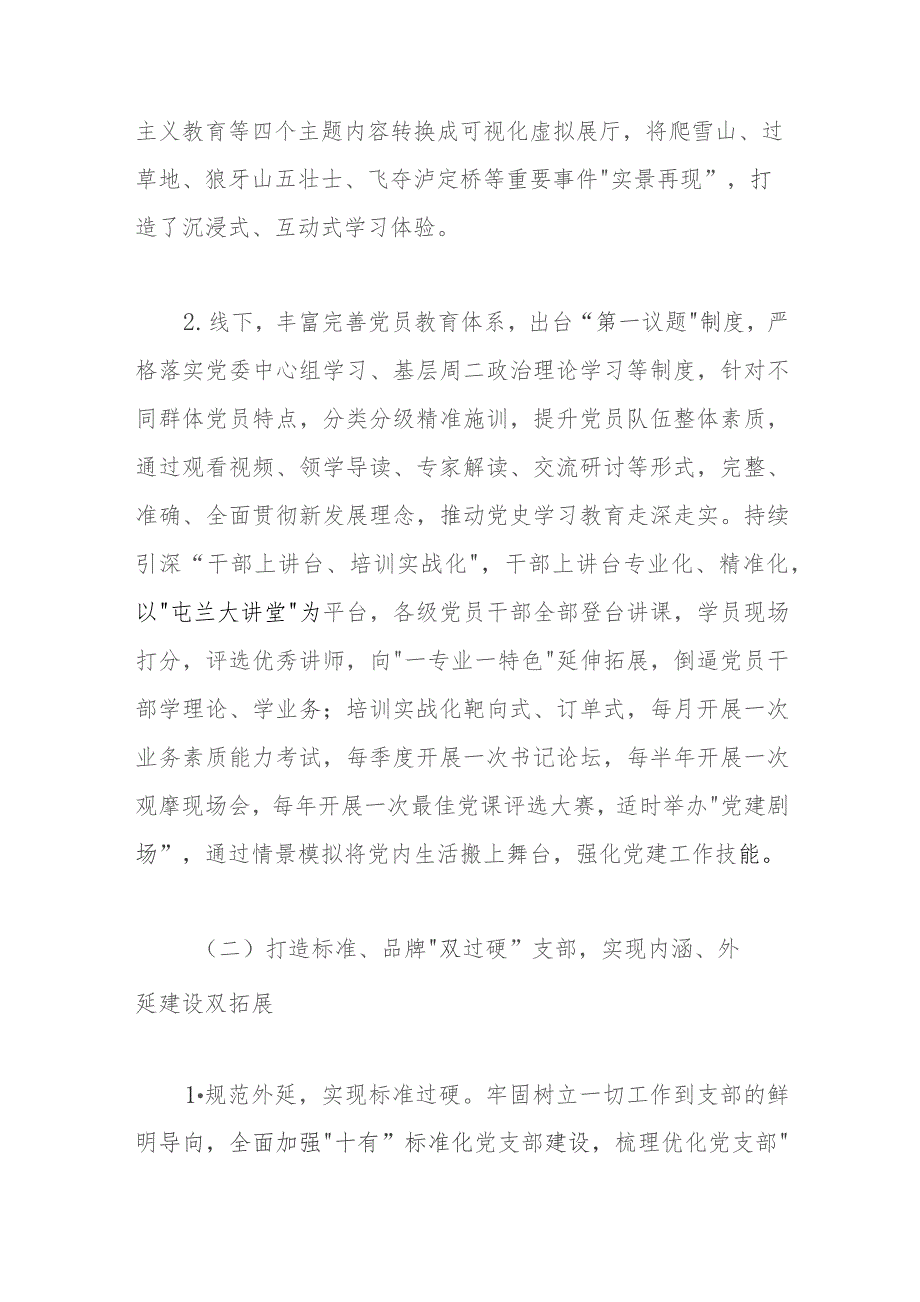 主义教育等四个主题内容转换成可视化虚拟展厅，将爬雪山、过
草地、狼牙山五壮士、飞夺泸定桥等重要事件"实景再现”，打
造了沉浸式、互动式学习体验。
2.线下，丰富完善党员教育体系，出台“第一议题"制度，严
格落实党委中心组学习、基层周二政治理论学习等制度，针对不
同群体党员特点，分类分级精准施训，提升党员队伍整体素质，
通过观看视频、领学导读、专家解读、交流研讨等形式，完整、
准确、全面贯彻新发展理念，推动党史学习教育走深走实。持续
引深“干部上讲台、培训实战化"，干部上讲台专业化、精准化，
以"屯兰大讲堂"为平台，各级党员干部全部登台讲课，学员现场
打分，评选优秀讲师，向"一专业一特色"延伸拓展，倒逼党员干
部学理论、学业务；培训实战化靶向式、订单式，每月开展一次
业务素质能力考试，每季度开展一次书记论坛，每半年开展一次
观摩现场会，每年开展一次最佳党课评选大赛，适时举办"党建剧
场”，通过情景模拟将党内生活搬上舞台，强化党建工作技能。
（二）打造标准、品牌"双过硬”支部，实现内涵、外
延建设双拓展
1•规范外延，实现标准过硬。牢固树立一切工作到支部的鲜
明导向，全面加强"十有”标准化党支部建设，梳理优化党支部"